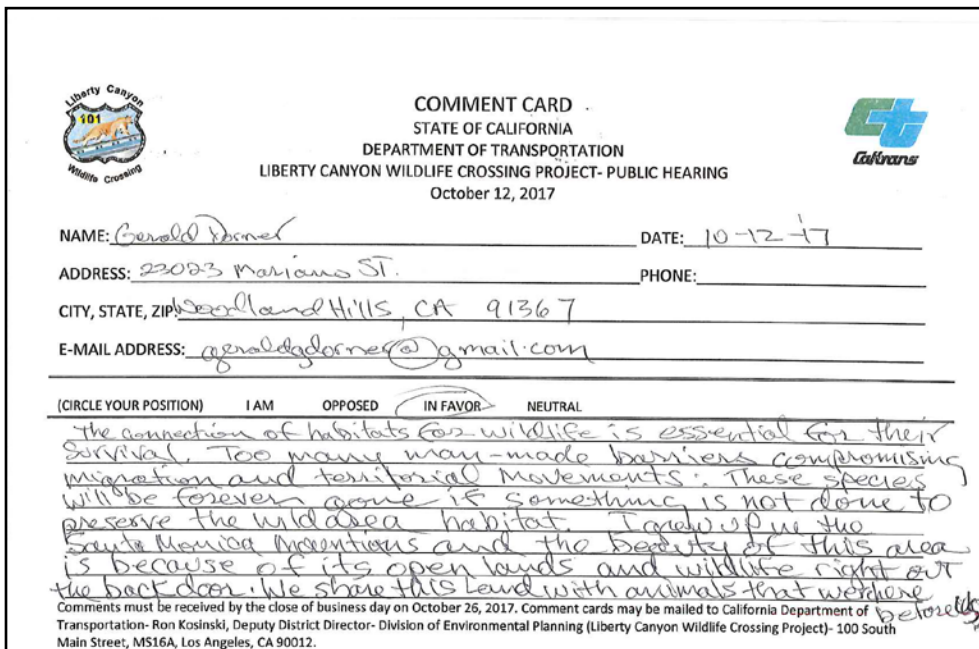 Liberty Canyon
101
Wildlife Crossing
COMMENT CARD
STATE OF CALIFORNIA
DEPARTMENT OF TRANSPORTATION
LIBERTY CANYON WILDLIFE CROSSING PROJECT- PUBLIC HEARING
October 12, 2017
Caltrans
NAME: Gerald Dorner DATE: 10-12-17
ADDRESS: 23023 Mariano ST. PHONE:
CITY, STATE, ZIP: Woodland Hills, CA 91367
E-MAIL ADDRESS: geraldgdorner@gmail.com
(CIRCLE YOUR POSITION) I AM OPPOSED IN FAVOR NEUTRAL
The connection of habitats for wildlife is essential for their
survival. Too many man-made barriers compromising
migration and territorial movements. These species
will be forever gone if something is not done to
preserve the wild area habitat. I grew up in the
Santa Monica Mountions and the beauty of this area
is because of its open lands and wildlife right out
the back door. We share this land with animals that were here
before us.
Comments must be received by the close of business day on October 26, 2017. Comment cards may be mailed to California Department of
Transportation- Ron Kosinski, Deputy District Director- Division of Environmental Planning (Liberty Canyon Wildlife Crossing Project)- 100 South
Main Street, MS16A, Los Angeles, CA 90012.